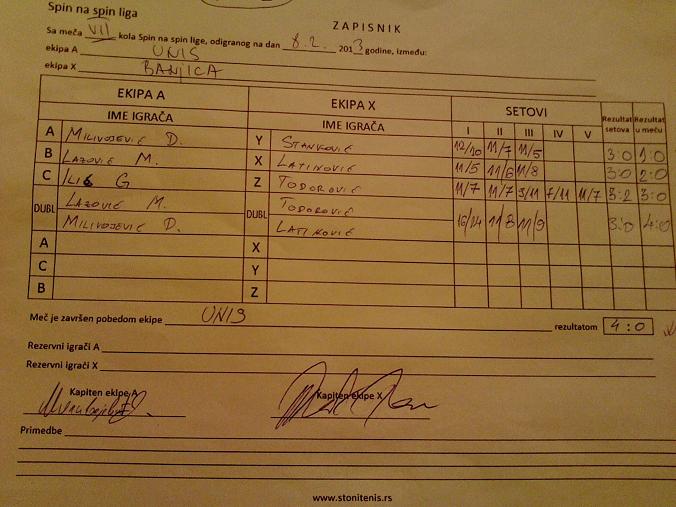 Spin na spin liga
ZAPISNIK
Sa meča VII kola Spin na spin lige, odigranog na dan 8.2. 2013 godine, između:
ekipa A UNIS
ekipa X BANJICA
EKIPA A EKIPA X SETOVI Rezultat setova Rezultat u meču
IME IGRAČA IME IGRAČA I II III IV V
A MILIVOJEVIĆ D. Y STANKOVIĆ 12/10 11/7 11/5 3:0 1:0
B LAZOVIĆ M. X LATINOVIĆ 11/5 11/6 11/8 3:0 2:0
C ILIĆ G Z TODOROVIĆ 11/7 11/7 9/11 7/11 11/7 3:2 3:0
DUBL LAZOVIĆ M. DUBL TODOROVIĆ 16/14 11/8 11/9 3:0 4:0
MILIVOJEVIĆ D. LATINOVIĆ
A X
C Y
B Z
Meč je završen pobedom ekipe UNIS rezultatom 4:0
Rezervni igrači A
Rezervni igrači X
Kapiten ekipe A Kapiten ekipe X
Primedbe
www.stonitenis.rs